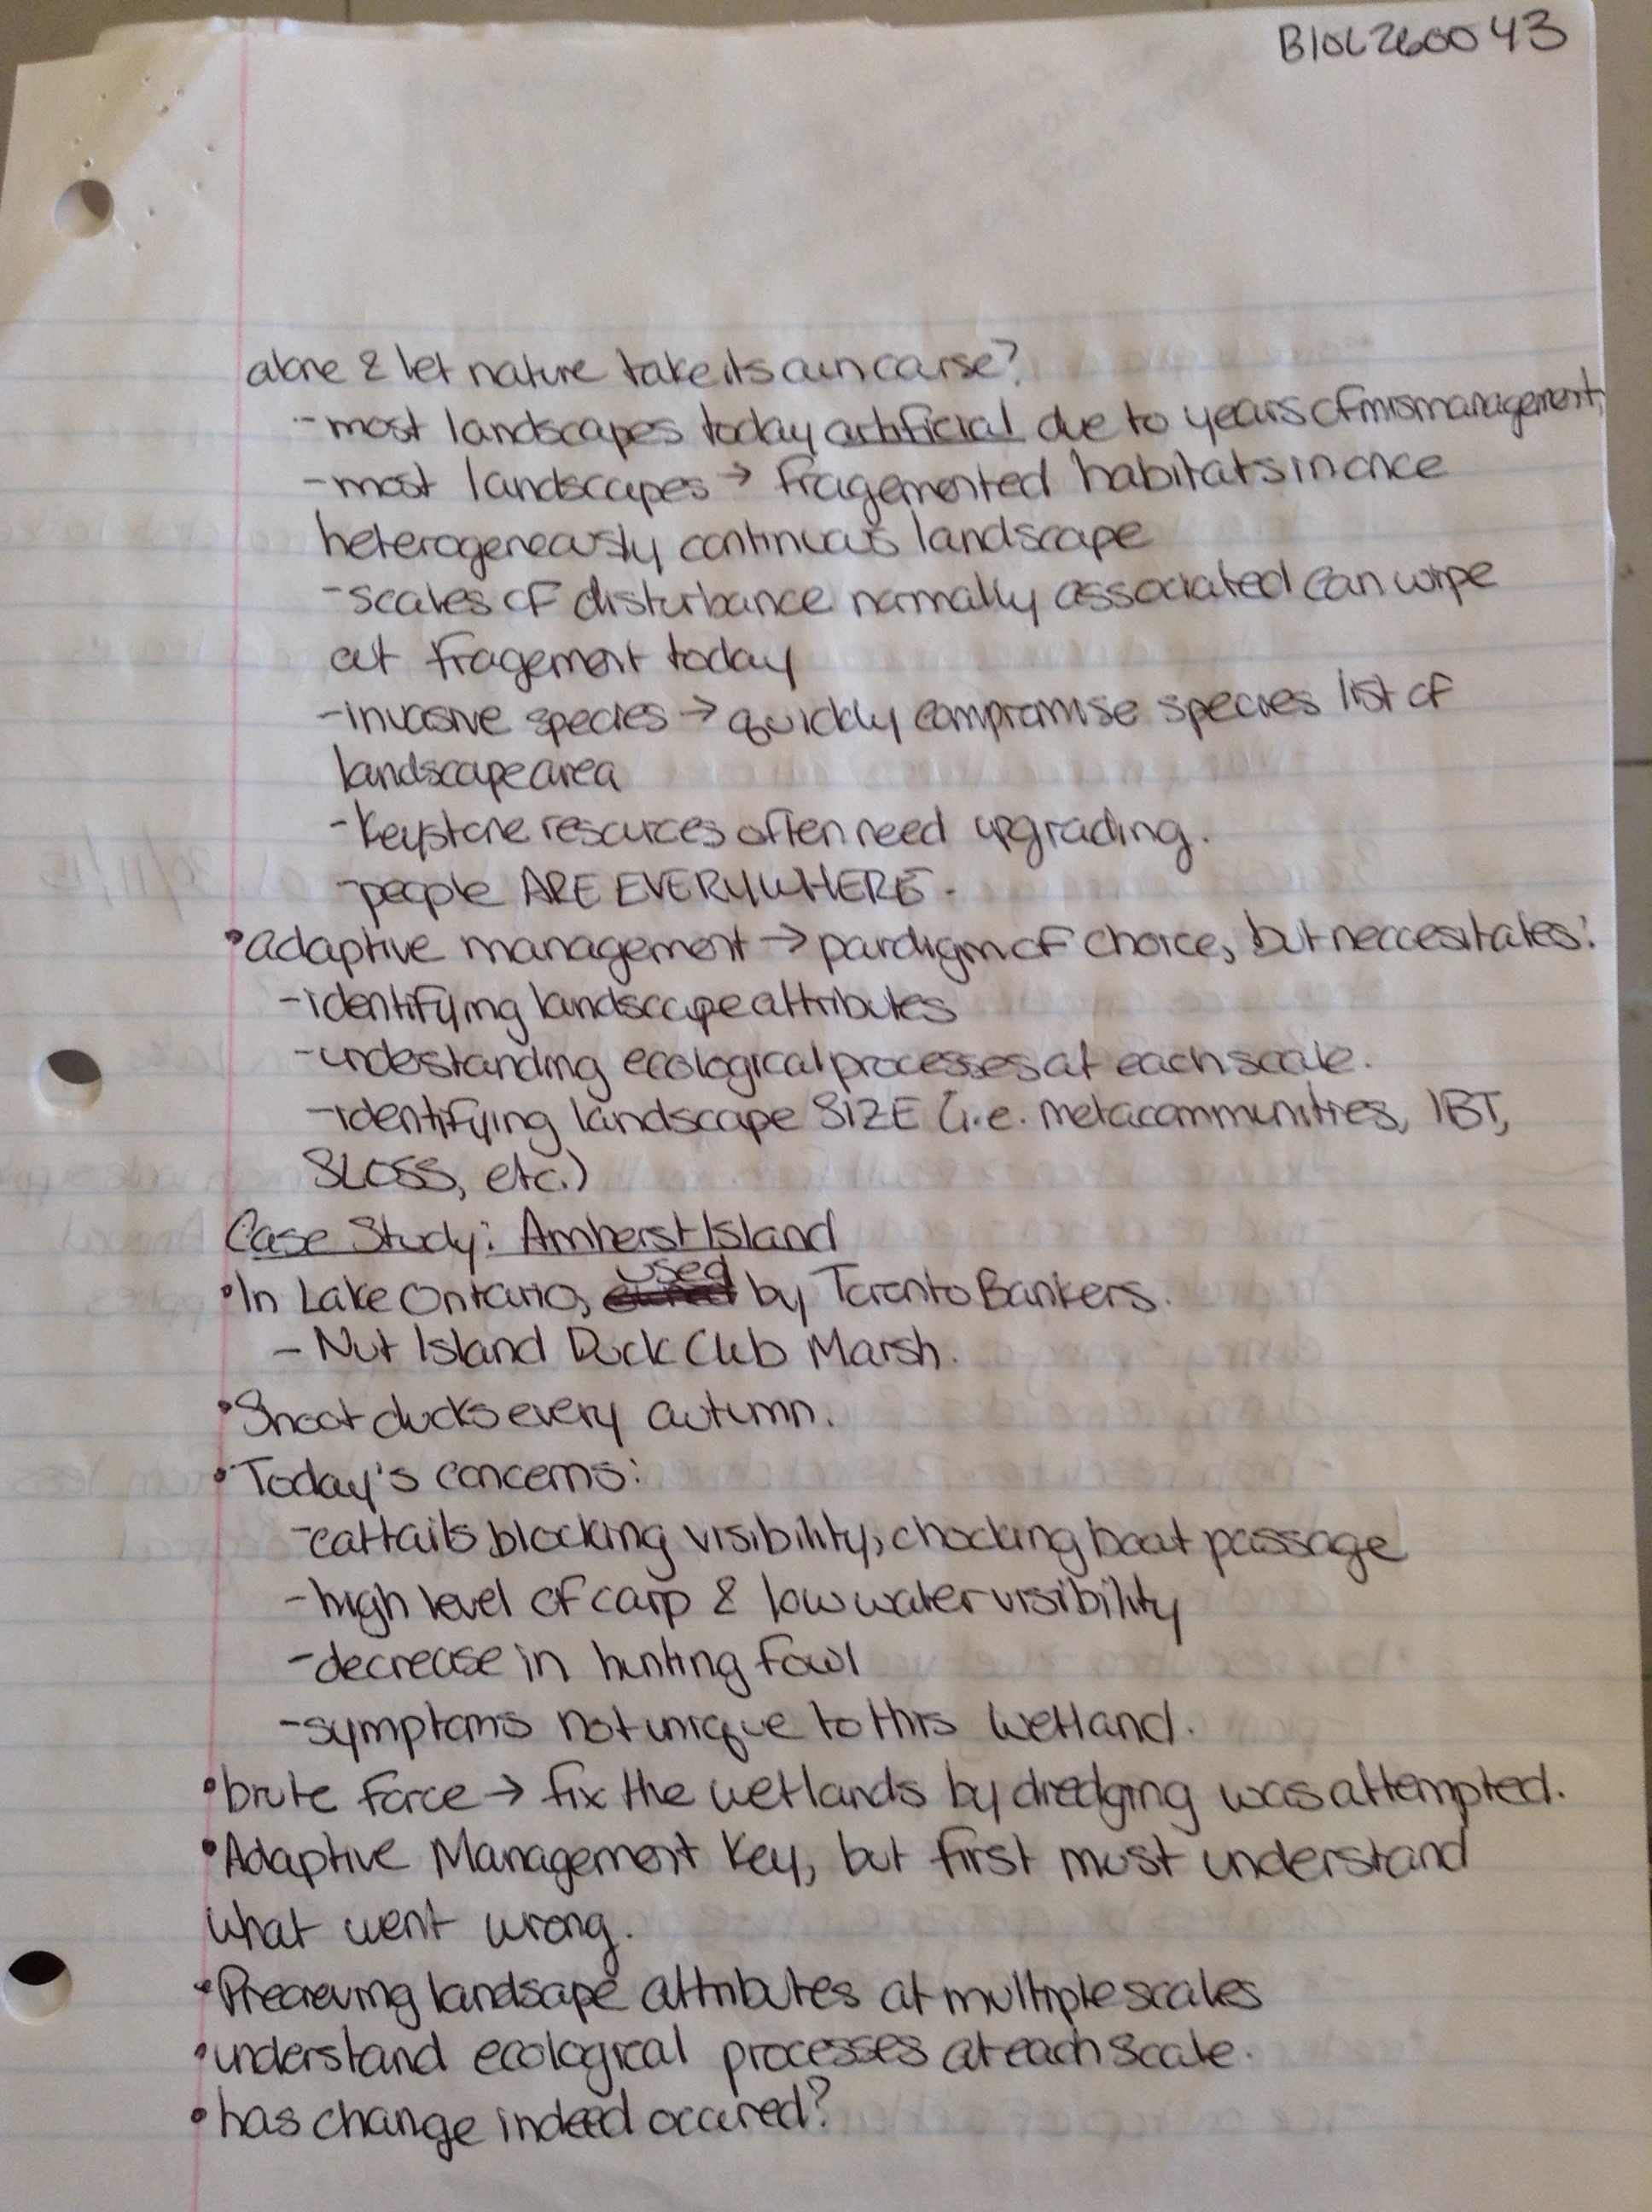 BIOL2600 43
alone & let nature take its own course?
- most landscapes today artificial due to years of mismanagement,
- most landscapes → fragemented habitats in once
heterogeneously continuous landscape
- scales of disturbance normally associated can wipe
out fragement today
- invasive species → quickly compromise species list of
landscape area
- Keystone resources often need upgrading.
- people ARE EVERYWHERE.
• adaptive management → pardigm of choice, but neccesitates:
- identifying landscape attributes
- undestanding ecological processes at each scale.
- identifying landscape SIZE (i.e. metacommunities, IBT,
SLOSS, etc.)
Case Study: Amherst Island
• In Lake Ontario, used by Toronto Bankers.
- Nut Island Duck Club Marsh.
• Shoot ducks every autumn.
• Today's concerns:
- cattails blocking visibility, chocking boat passage
- high level of carp & low water visibility
- decrease in hunting fowl
- symptoms not unique to this wetland.
• brute force → fix the wetlands by dredging was attempted.
• Adaptive Management Key, but first must understand
what went wrong.
• Precieving landsape attributes at multiple scales
• understand ecological processes at each scale.
• has change indeed occured?